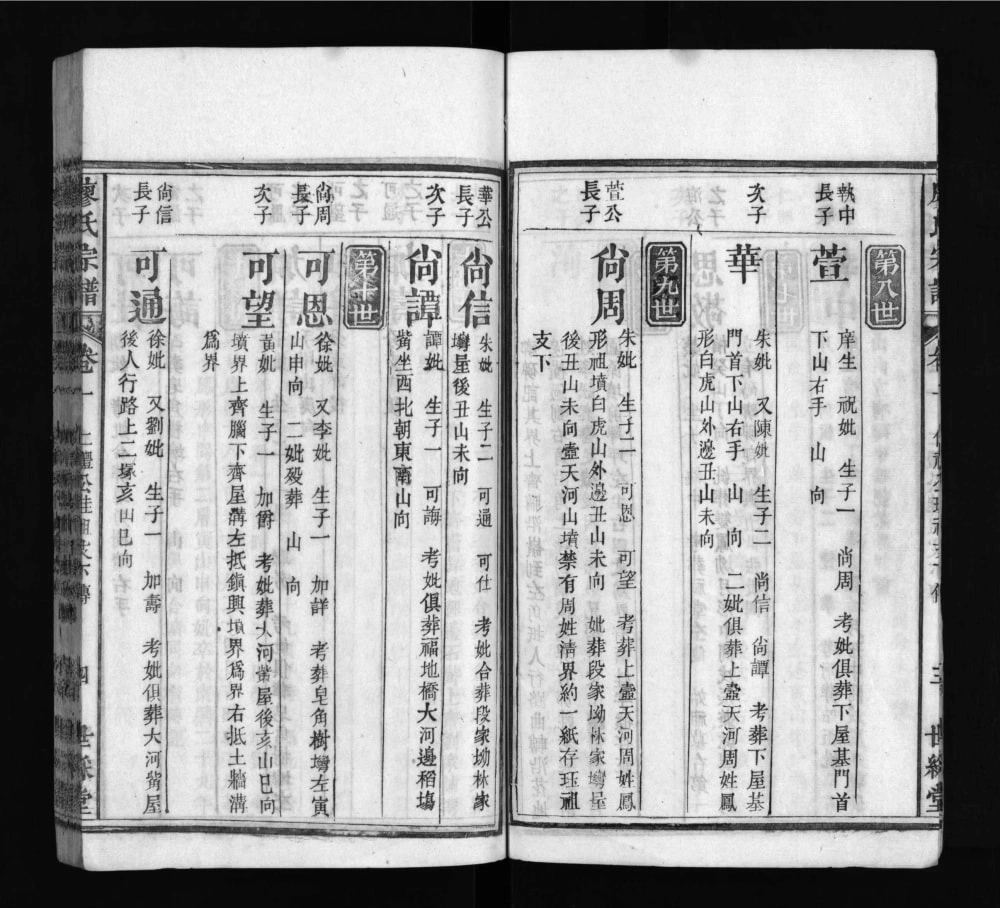 第八世
執中
長子
萱
庠生 祝妣 生子一 尙周 考妣俱葬下屋基門首
下山右手 山 向
次子
華
朱妣 又陳妣 生子二 尙信 尙譚 考葬下屋基
門首下山右手 山 向 二妣俱葬上壼天河周姓鳳
形白虎山外邊丑山未向
第九世
萱公
長子
尙周
朱妣 生子二 可恩 可望 考葬上壼天河周姓鳳
形祖墳白虎山外邊丑山未向 妣葬段家坳林家塆屋
後丑山未向壼天河山墳禁有周姓清界約一紙存珏祖
支下
華公
長子
尙信
朱妣 生子二 可通 可仕 考妣合葬段家坳林家
塆屋後丑山未向
次子
尙譚
譚妣 生子一 可誨 考妣俱葬福地橋大河邊稻塲
坐西北朝東南山向
世
尙周
長子
可恩
徐妣 又李妣 生子一 加詳 考葬皂角樹塆左寅
山申向 二妣殁葬 山 向
次子
可望
黃妣 生子一 加爵 考妣葬大河 屋後亥山巳向
墳界上齊腦下齊屋溝左抵鎮興墳界爲界右抵土牆溝
爲界
尙信
長子
可通
徐妣 又劉妣 生子一 加壽 考妣俱葬大河 屋
後人行路上二塚亥山巳向
廖氏宗譜 卷一 四 世綵堂
三 世綵堂